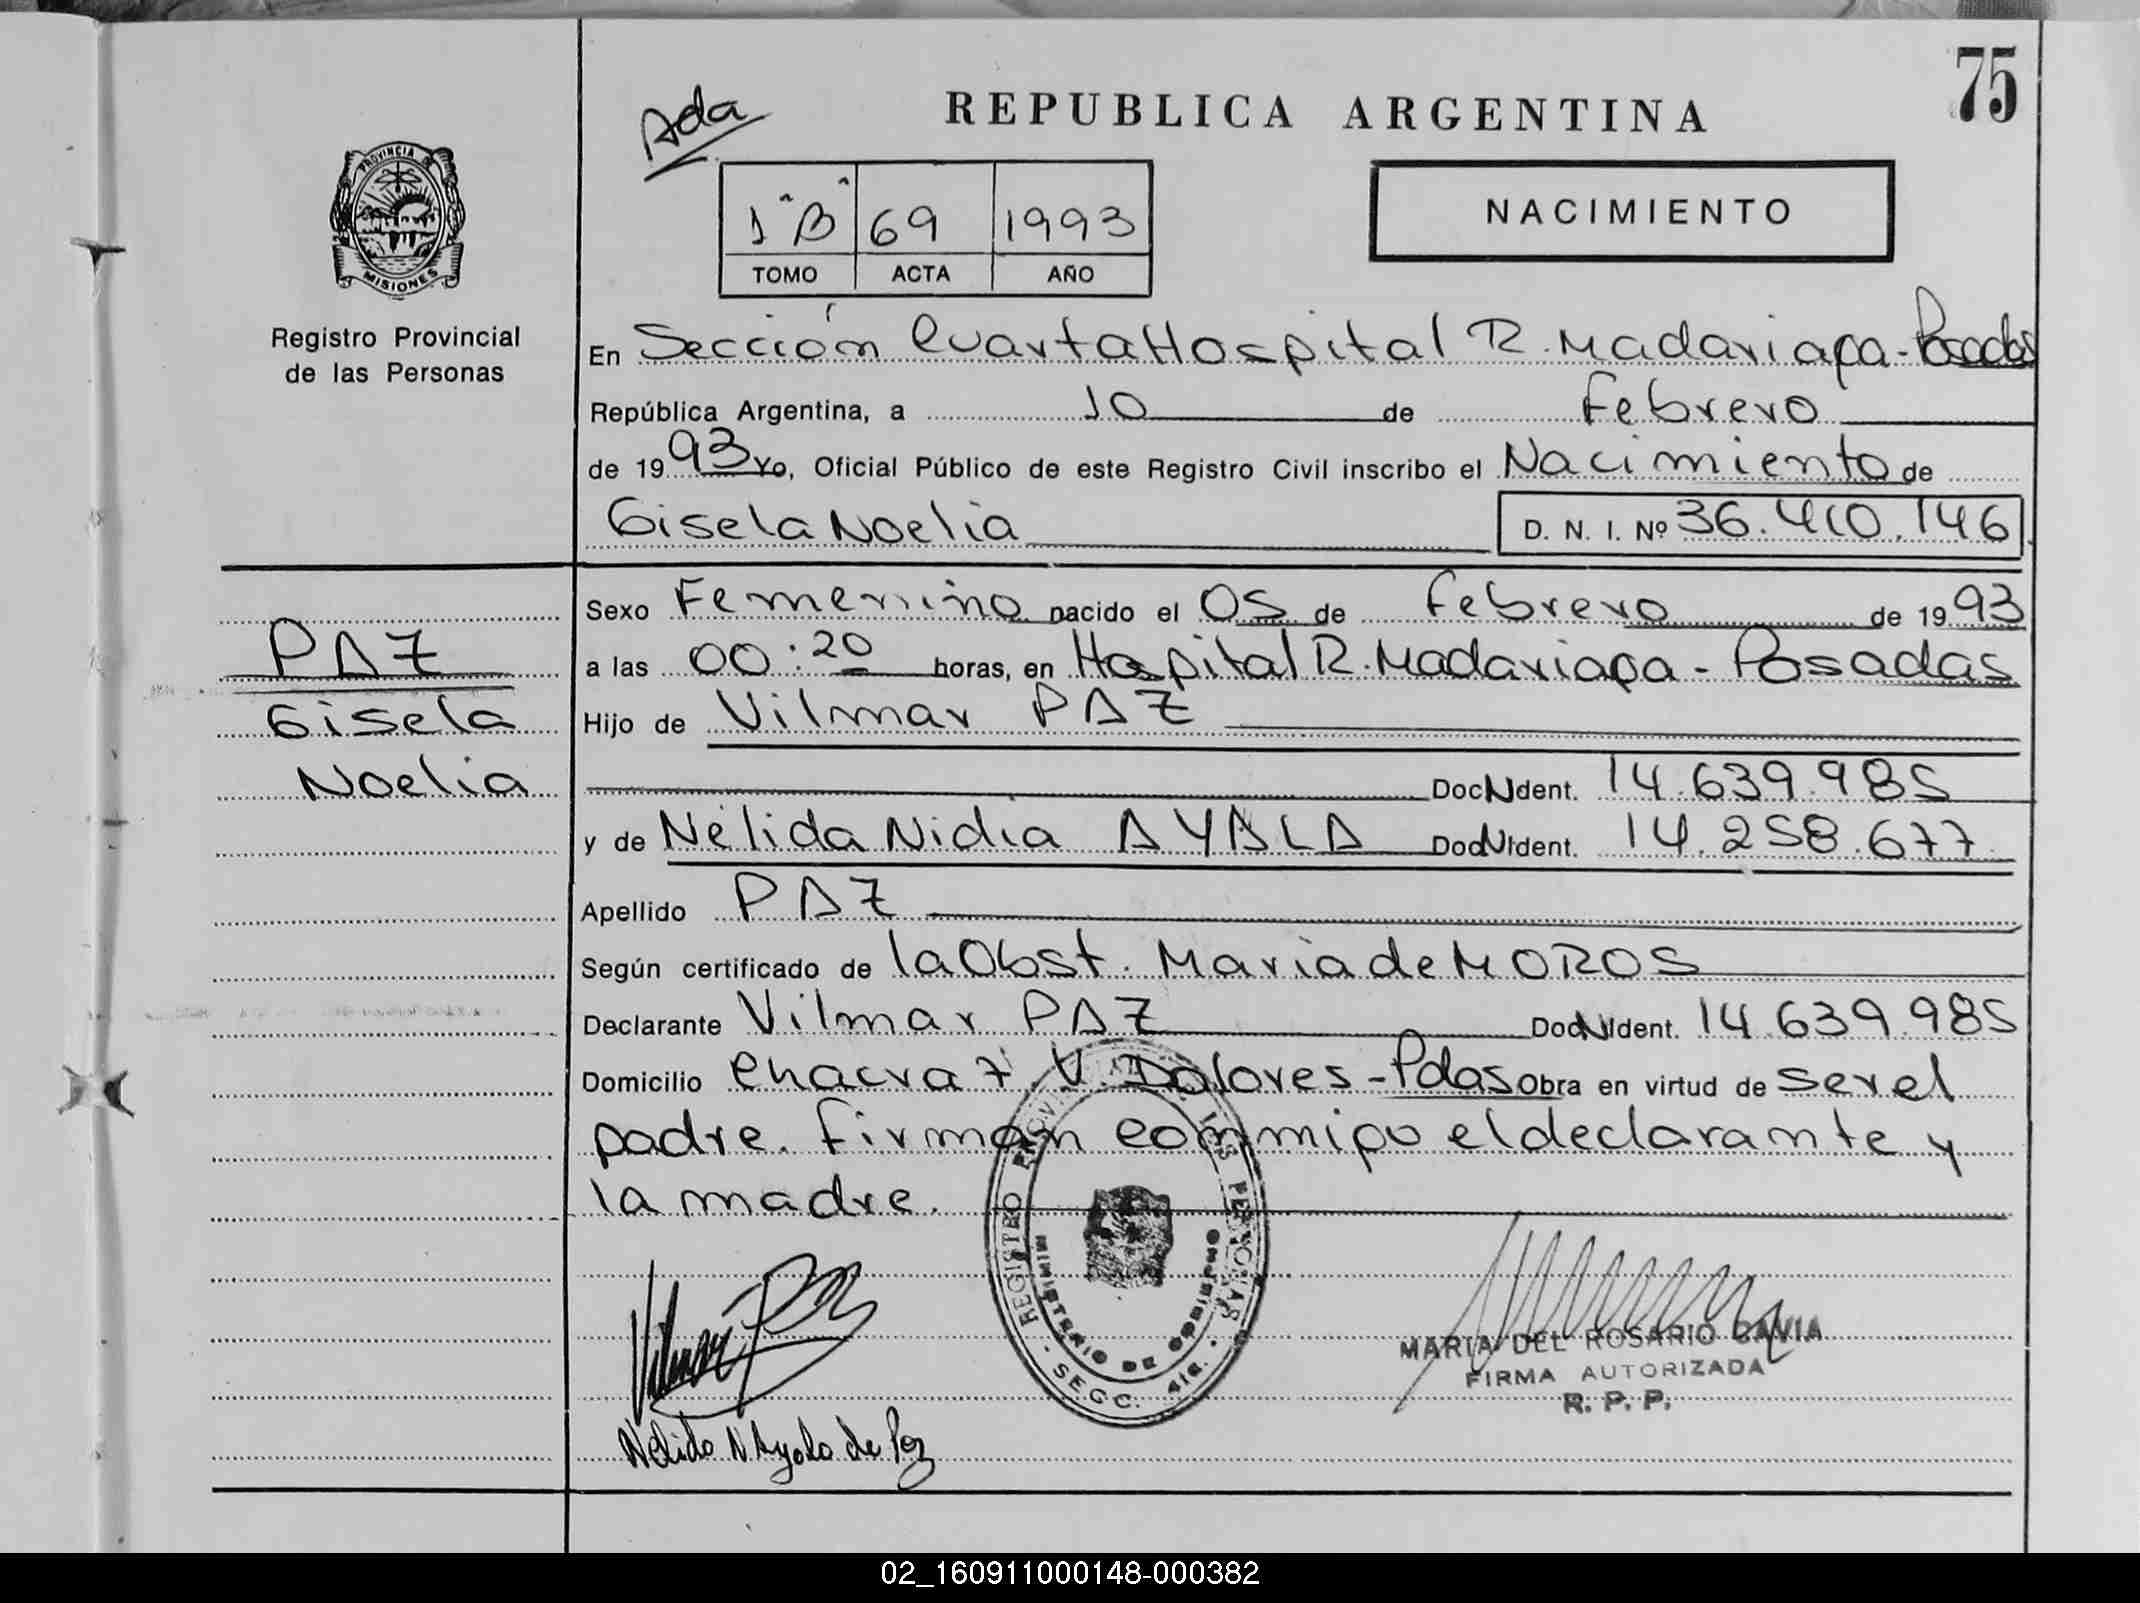 75
Ada
REPUBLICA ARGENTINA
PROVINCIA DE
MISIONES
1ª B 69 1993
TOMO ACTA AÑO
NACIMIENTO
Registro Provincial
de las Personas
En Sección Cuarta Hospital R. Madariaga - Posadas
República Argentina, a 10 de Febrero
de 1993 Yo, Oficial Público de este Registro Civil inscribo el Nacimiento de
Gisela Noelia D. N. I. Nº 36.410.146
PAZ
Gisela
Noelia
Sexo Femenino nacido el 05 de Febrero de 1993
a las 00:20 horas, en Hospital R. Madariaga - Posadas
Hijo de Vilmar PAZ
Doc N Ident. 14.639.985
y de Nélida Nidia AYALA Doc N Ident. 14.258.677
Apellido PAZ
Según certificado de la Obst. Maria de MOROS
Declarante Vilmar PAZ Doc N Ident. 14.639.985
Domicilio Chacra 7 V. Dolores - Pdas Obra en virtud de ser el
padre. Firman conmigo el declarante y
la madre.
REGISTRO PROVINCIAL DE LAS PERSONAS
MINISTERIO DE GOBIERNO
SECC. 4ta.
Vilmar Paz
MARIA DEL ROSARIO GAVIA
FIRMA AUTORIZADA
R. P. P.
Nélida N Ayala de Paz
02_160911000148-000382